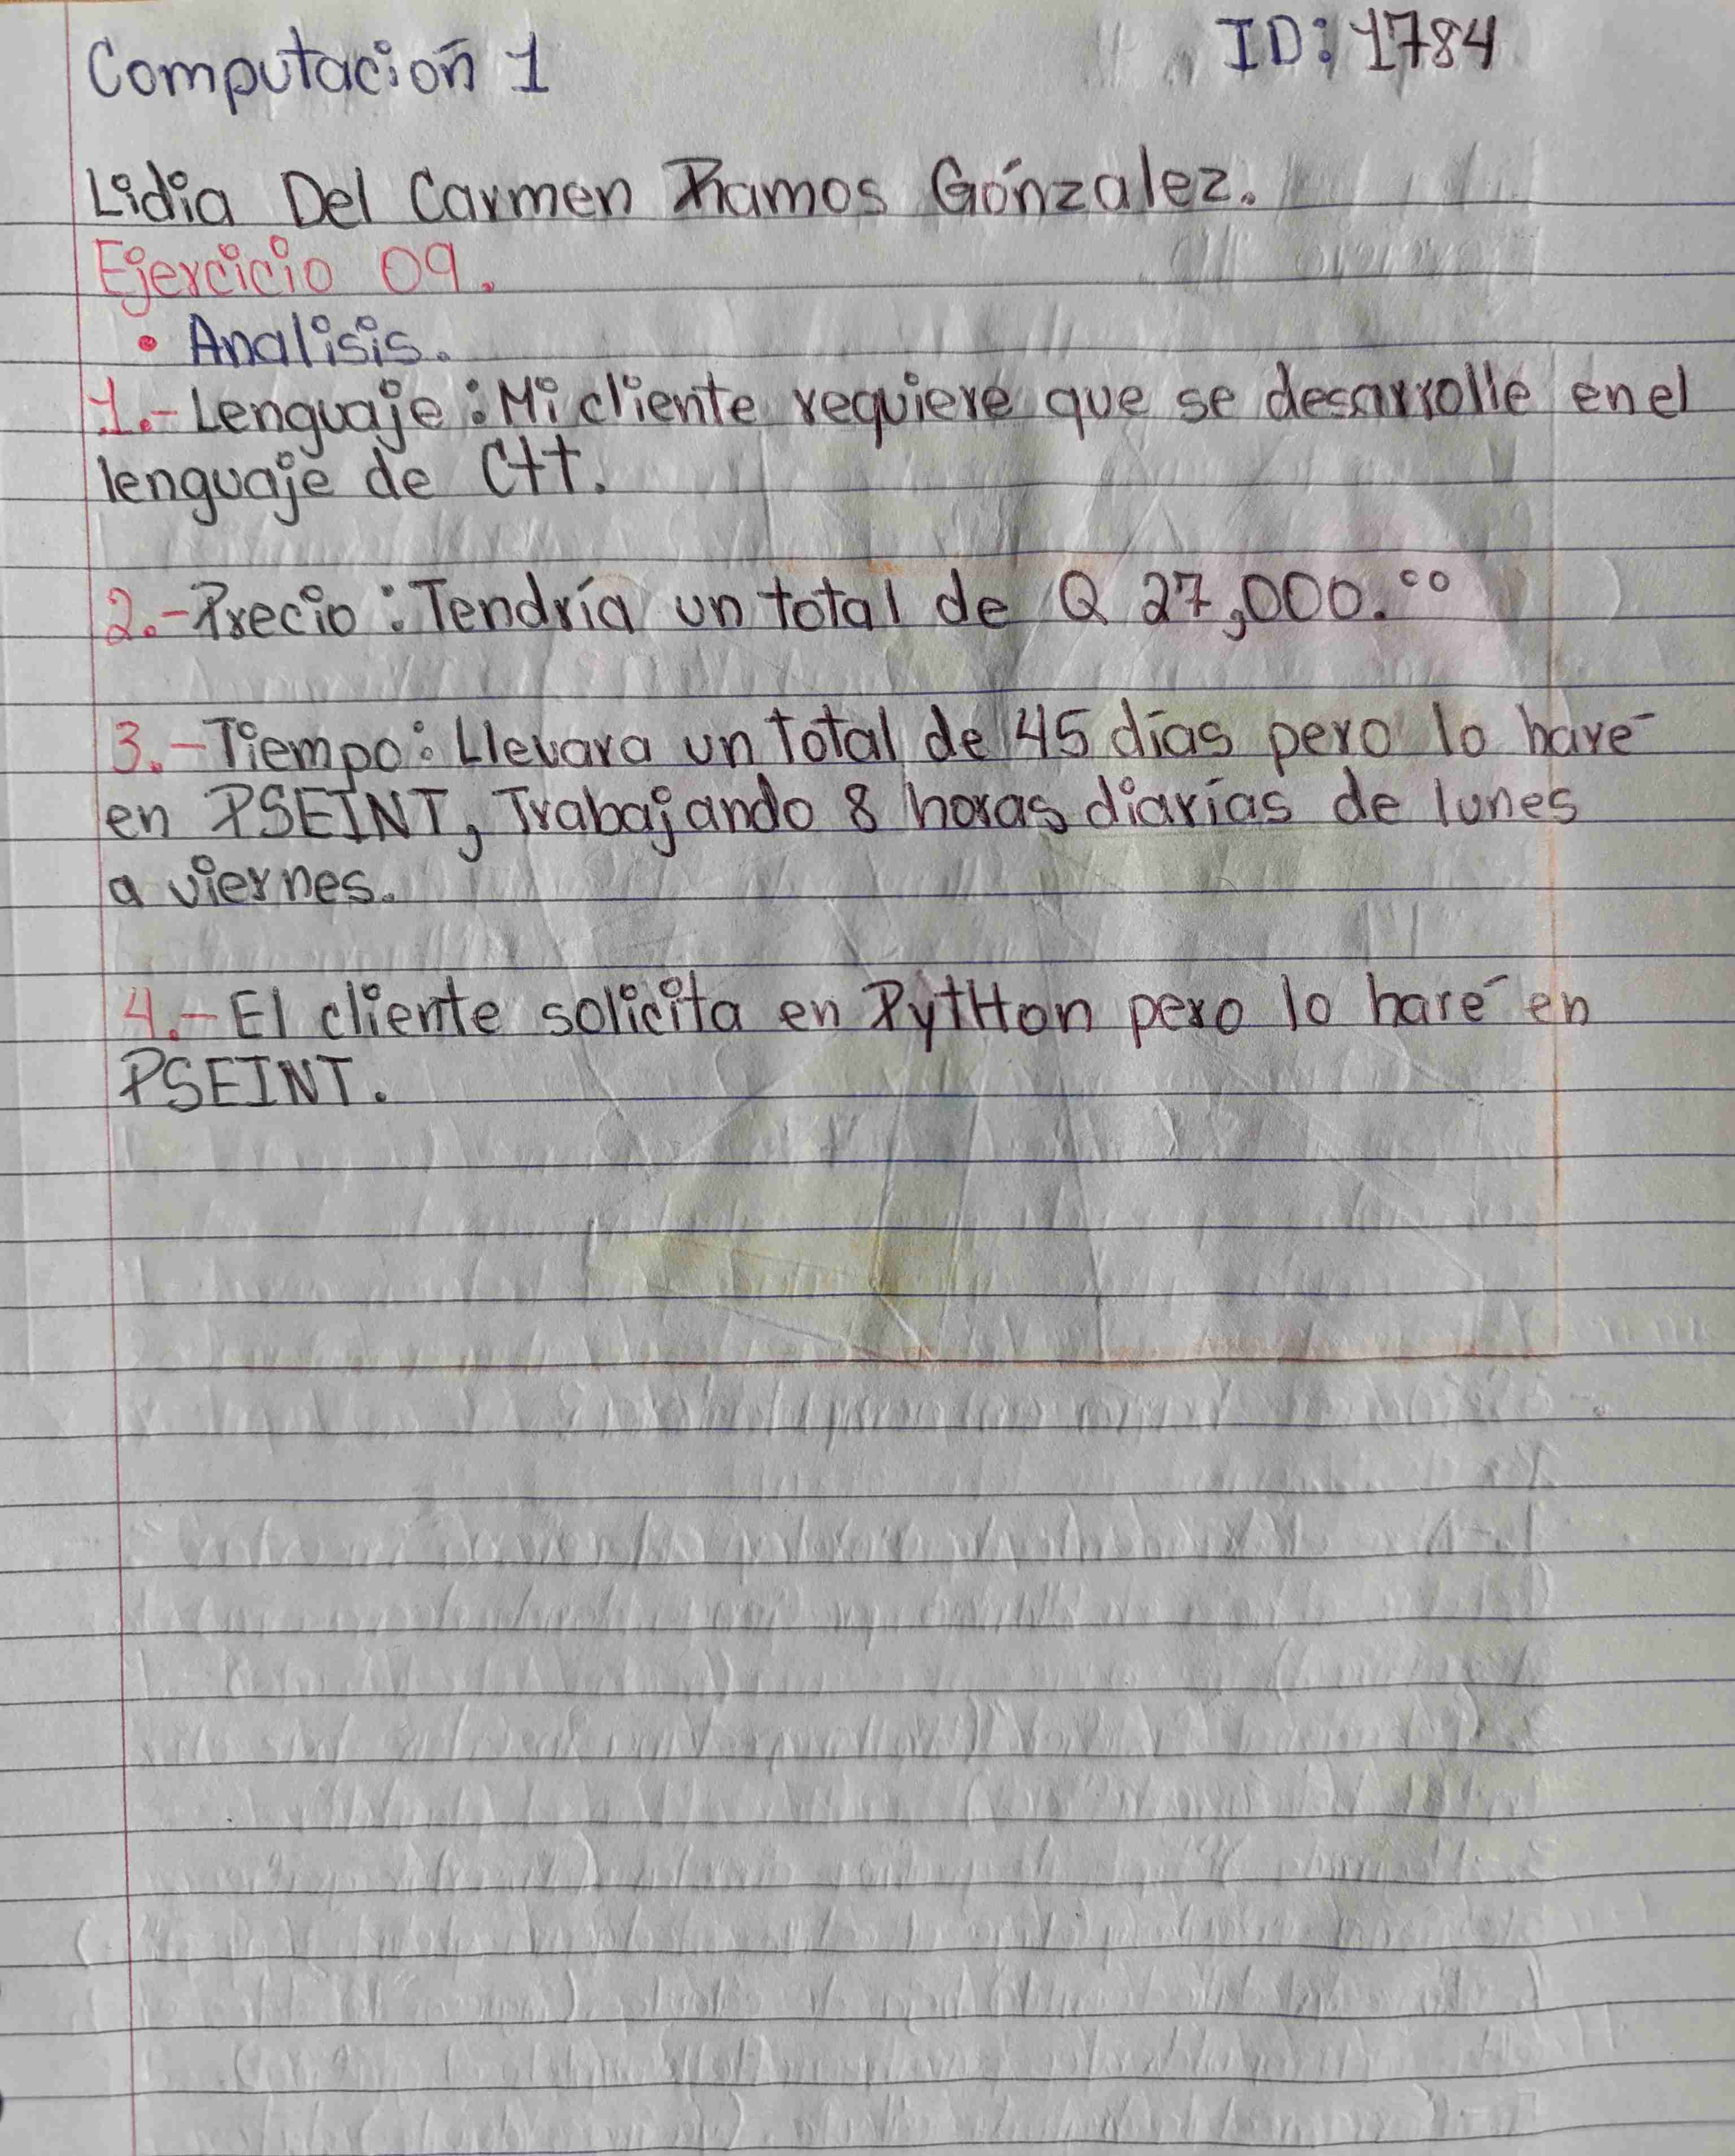 Computación 1
ID: 1784
Lidia Del Carmen Ramos Gónzalez.
Ejercicio 09.
• Analisis.
1.- Lenguaje: Mi cliente requiere que se desarrolle en el
lenguaje de C++.
2.- Precio: Tendría un total de Q 27,000.00
3.- Tiempo: Llevara un total de 45 días pero lo haré
en PSEINT, Trabajando 8 horas diarías de lunes
a viernes.
4.- El cliente solicita en PytHon pero lo haré en
PSEINT.